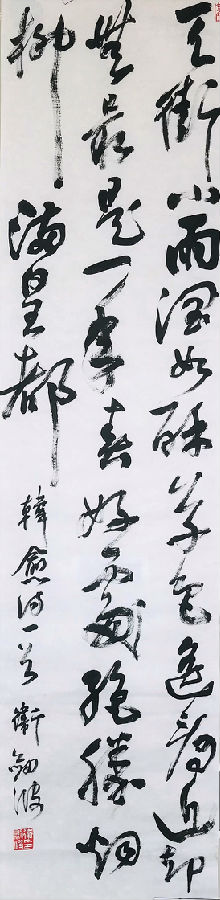 天街小雨润如酥草色遥看近却
無最是一年春好處絕勝烟
柳满皇都
韓愈诗一首 衛劍波